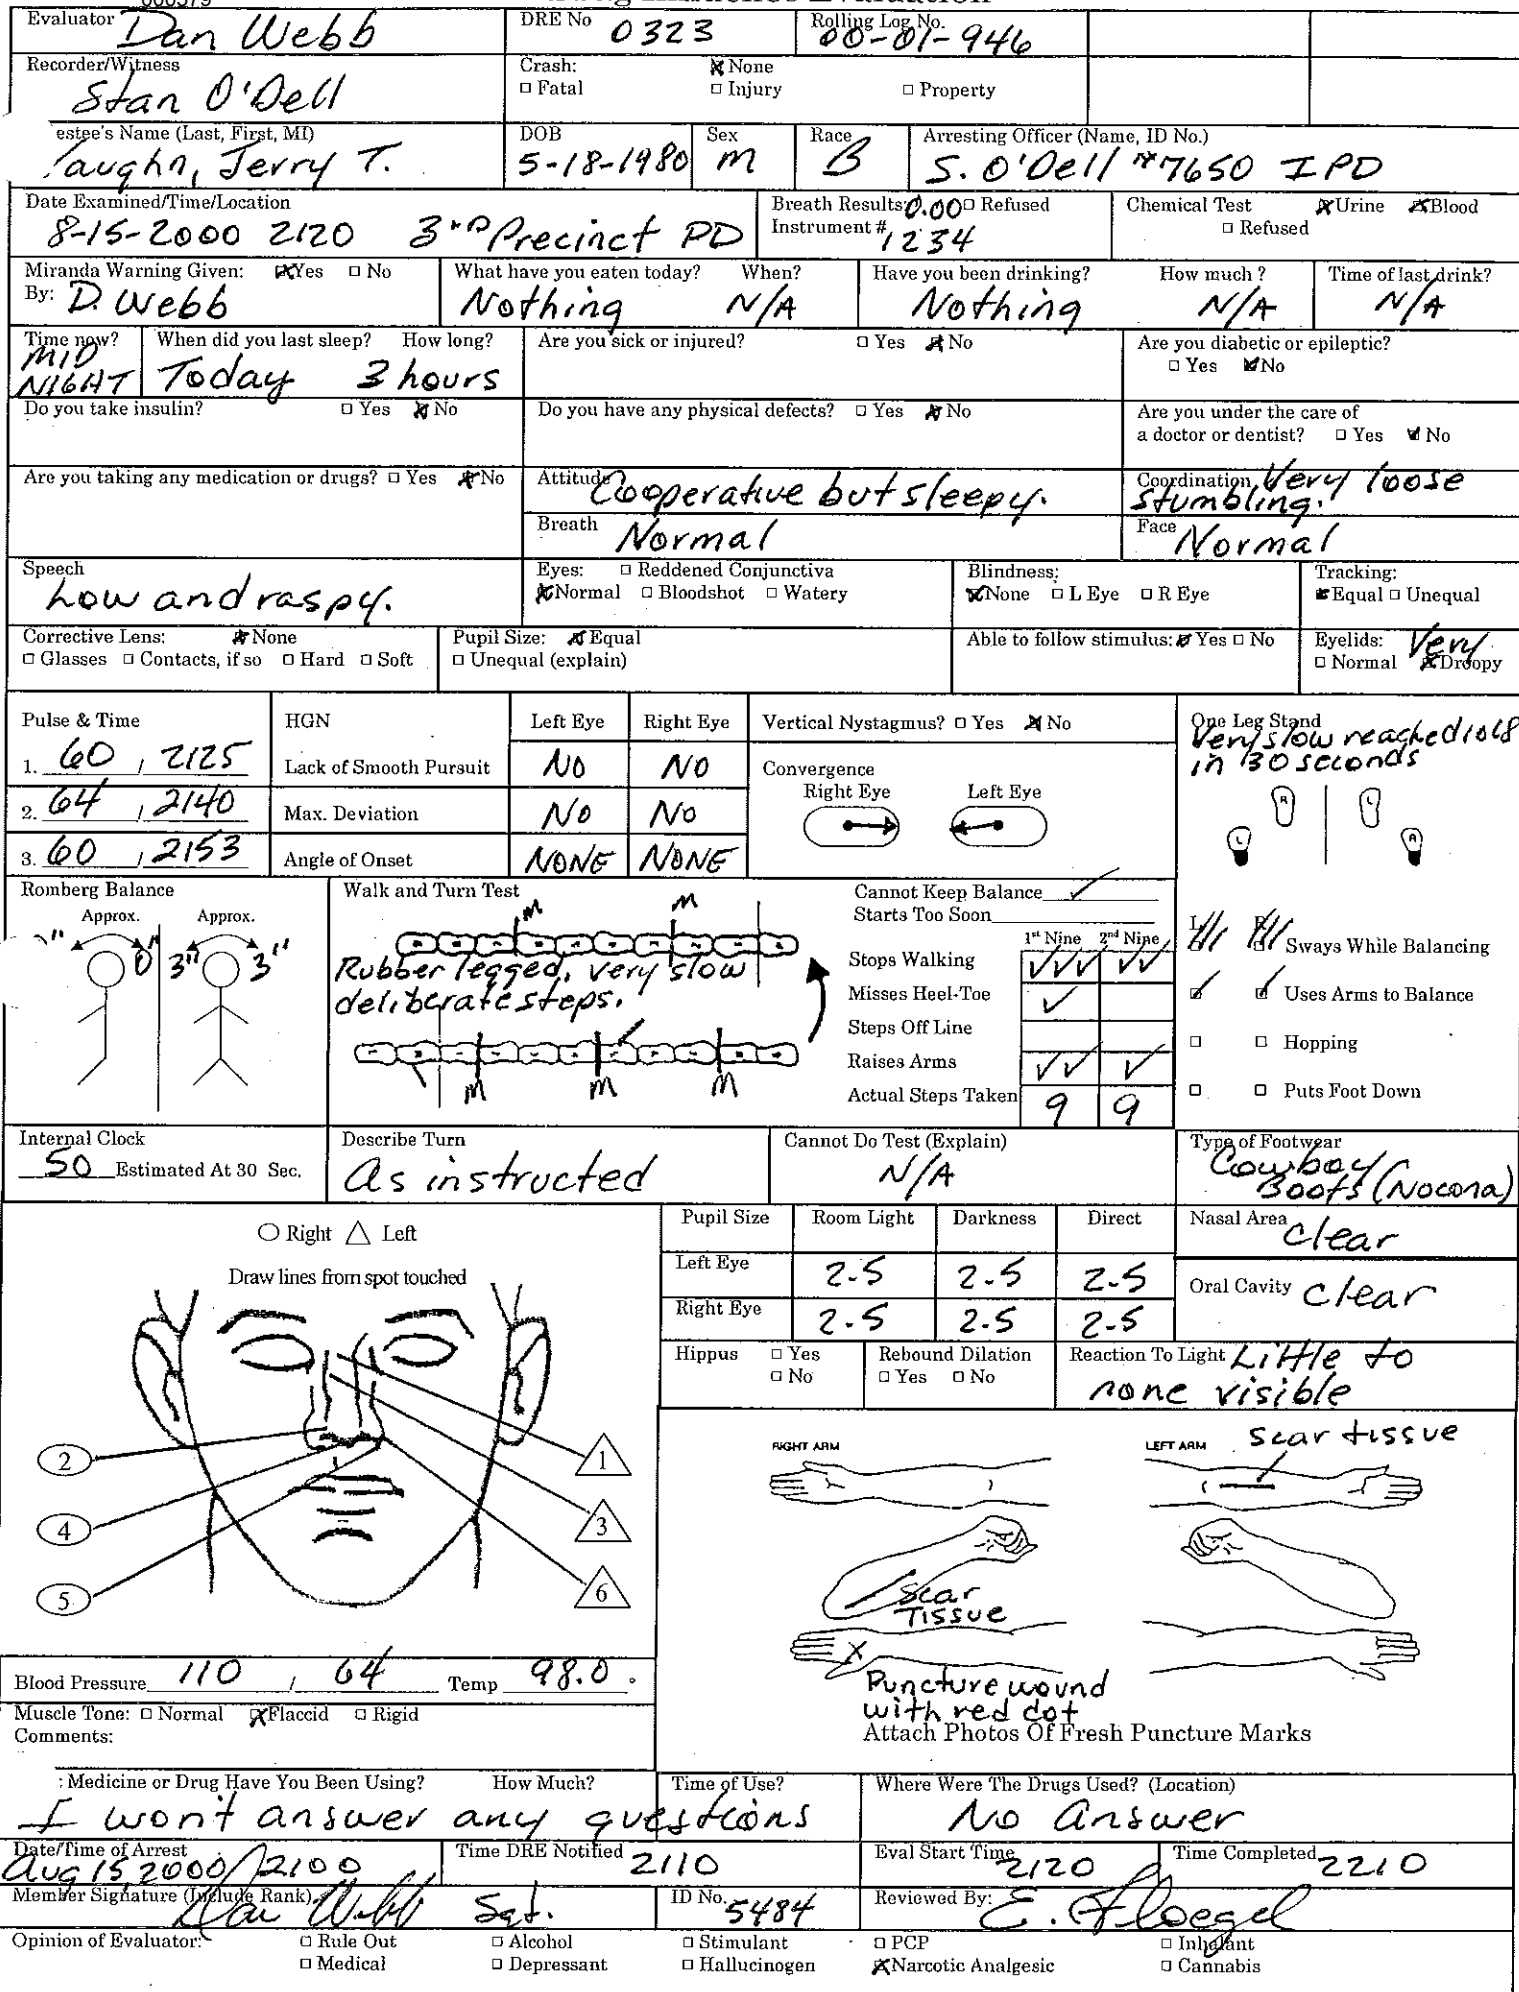 Evaluator Dan Webb
DRE No 0323
Rolling Log No. 00-01-946
Recorder/Witness Stan O'Dell
Crash: ☒ None
□ Fatal □ Injury □ Property
estee's Name (Last, First, MI) Vaughn, Jerry T.
DOB 5-18-1980
Sex M
Race B
Arresting Officer (Name, ID No.) S. O'Dell #7650 IPD
Date Examined/Time/Location
8-15-2000 2120 3rd Precinct PD
Breath Results: 0.00 □ Refused
Instrument # 1234
Chemical Test ☒ Urine ☒ Blood
□ Refused
Miranda Warning Given: ☒ Yes □ No
By: D. Webb
What have you eaten today? When?
Nothing N/A
Have you been drinking? How much? Time of last drink?
Nothing N/A N/A
Time now? MID NIGHT
When did you last sleep? How long?
Today 3 hours
Are you sick or injured? □ Yes ☒ No
Are you diabetic or epileptic?
□ Yes ☒ No
Do you take insulin? □ Yes ☒ No
Do you have any physical defects? □ Yes ☒ No
Are you under the care of
a doctor or dentist? □ Yes ☒ No
Are you taking any medication or drugs? □ Yes ☒ No
Attitude Cooperative but sleepy.
Coordination Very loose
stumbling.
Breath Normal
Face Normal
Speech
Low and raspy.
Eyes: □ Reddened Conjunctiva
☒ Normal □ Bloodshot □ Watery
Blindness:
☒ None □ L Eye □ R Eye
Tracking:
☒ Equal □ Unequal
Corrective Lens: ☒ None
□ Glasses □ Contacts, if so □ Hard □ Soft
Pupil Size: ☒ Equal
□ Unequal (explain)
Able to follow stimulus: ☒ Yes □ No
Eyelids: Very
□ Normal ☒ Droopy
Pulse & Time
1. 60 / 2125
2. 64 / 2140
3. 60 / 2153
HGN Left Eye Right Eye
Lack of Smooth Pursuit NO NO
Max. Deviation NO NO
Angle of Onset NONE NONE
Vertical Nystagmus? □ Yes ☒ No
Convergence
Right Eye Left Eye
One Leg Stand
Very slow reached 1018
in 30 seconds
R L
L R
Romberg Balance
Approx. Approx.
0" 3" 3"
Walk and Turn Test
M M
Rubber legged, very slow
deliberate steps.
M M M
Cannot Keep Balance ✓
Starts Too Soon
1st Nine 2nd Nine
Stops Walking ✓✓✓ ✓✓
Misses Heel-Toe ✓
Steps Off Line
Raises Arms ✓✓ ✓
Actual Steps Taken 9 9
L R
Sways While Balancing
☑ ☑ Uses Arms to Balance
□ □ Hopping
□ □ Puts Foot Down
Internal Clock
50 Estimated At 30 Sec.
Describe Turn
As instructed
Cannot Do Test (Explain)
N/A
Type of Footwear
Cowboy
Boots (Nocona)
○ Right △ Left
Draw lines from spot touched
2 1
4 3
5 6
Pupil Size Room Light Darkness Direct
Left Eye 2.5 2.5 2.5
Right Eye 2.5 2.5 2.5
Nasal Area clear
Oral Cavity clear
Hippus □ Yes
□ No
Rebound Dilation
□ Yes □ No
Reaction To Light Little to
none visible
RIGHT ARM
LEFT ARM Scar tissue
Scar
Tissue
Puncture wound
with red dot
Attach Photos Of Fresh Puncture Marks
Blood Pressure 110 / 64 Temp 98.0
Muscle Tone: □ Normal ☒ Flaccid □ Rigid
Comments:
: Medicine or Drug Have You Been Using? How Much?
I won't answer any questions
Time of Use?
Where Were The Drugs Used? (Location)
No Answer
Date/Time of Arrest
Aug 15, 2000/2100
Time DRE Notified 2110
Eval Start Time 2120
Time Completed 2210
Member Signature (Include Rank) Dan Webb Sgt.
ID No. 5484
Reviewed By: E. Floegel
Opinion of Evaluator: □ Rule Out □ Alcohol □ Stimulant □ PCP □ Inhalant
□ Medical □ Depressant □ Hallucinogen ☒ Narcotic Analgesic □ Cannabis